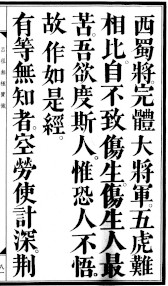 西蜀將完體大將軍。五虎難
相比。自不致傷生。傷生人最
苦。吾欲度斯人。惟恐人不悟。
故作如是經。
有等無知者。空勞使計深。荆